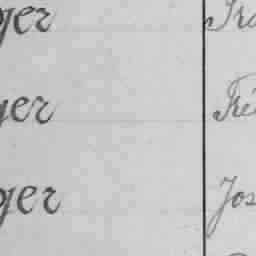 ger Fra
ger Fré
ger Jos